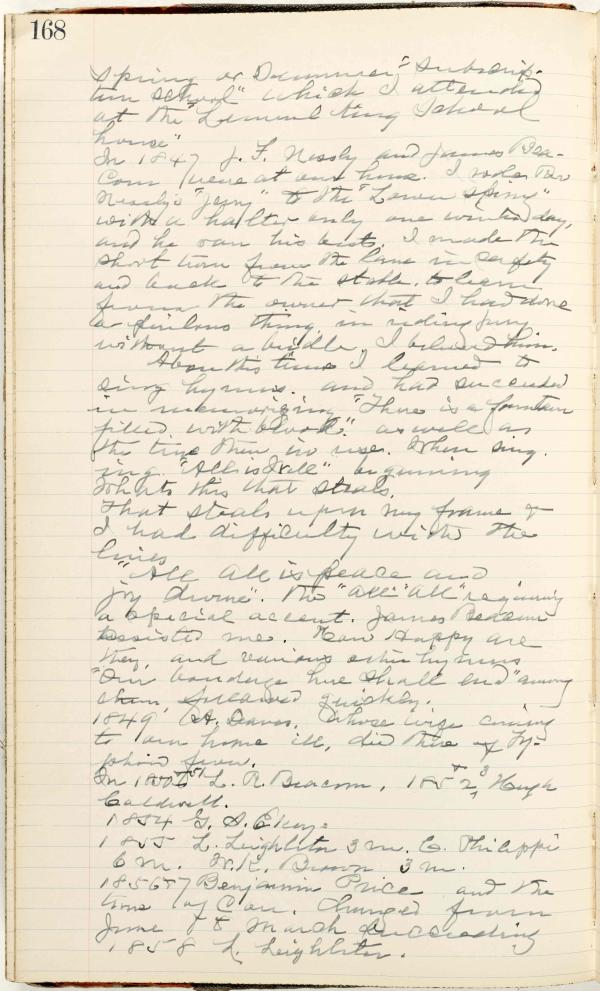 168
spring or Summer, "Subscrip-
tion school" which I attended
at the "Lemuel King School
house"
In 1847 J. F. Nessly and James Bea-
com were at our house. I rode Bro
Nessly's "Jerry" to the "Lower Spring"
with a halter only one winter day,
and he ran his best, I made the
short turn from the lane in safety
and back to the stable. to learn
from the owner that I had done
a perilous thing, in riding Jerry
without a bridle, I believed him.
About this time I learned to
sing hymns. and had succeeded
in memorizing "There is a fountain
filled with blood" as well as
the tune then in use. When sing-
ing "All is Well" beginning
Whats this that steals,
That steals upon my frame &
I had difficulty with the
lines
"All All is peace and
joy divine". The "All" "All" requiring
a special accent. James Beacom
assisted me. How Happy are
they, and various other hymns
"Our bondage here shall end" among
them, followed quickly.
1849, Deaves, whose wife coming
to our home ill, died there of Ty-
phoid fever.
In 1850 & 51 L. R. Beacom, 1852 & 3 Hugh
Caldwell.
1854 G. A. Ekey.
1855 L. Leighliter 3 m. C. Philippi
6 m. W. K. Brown 3 m.
1856 & 7 Benjamin Price and the
time of Con. Changed from
June to March succeeding
1858 L. Leighliter.